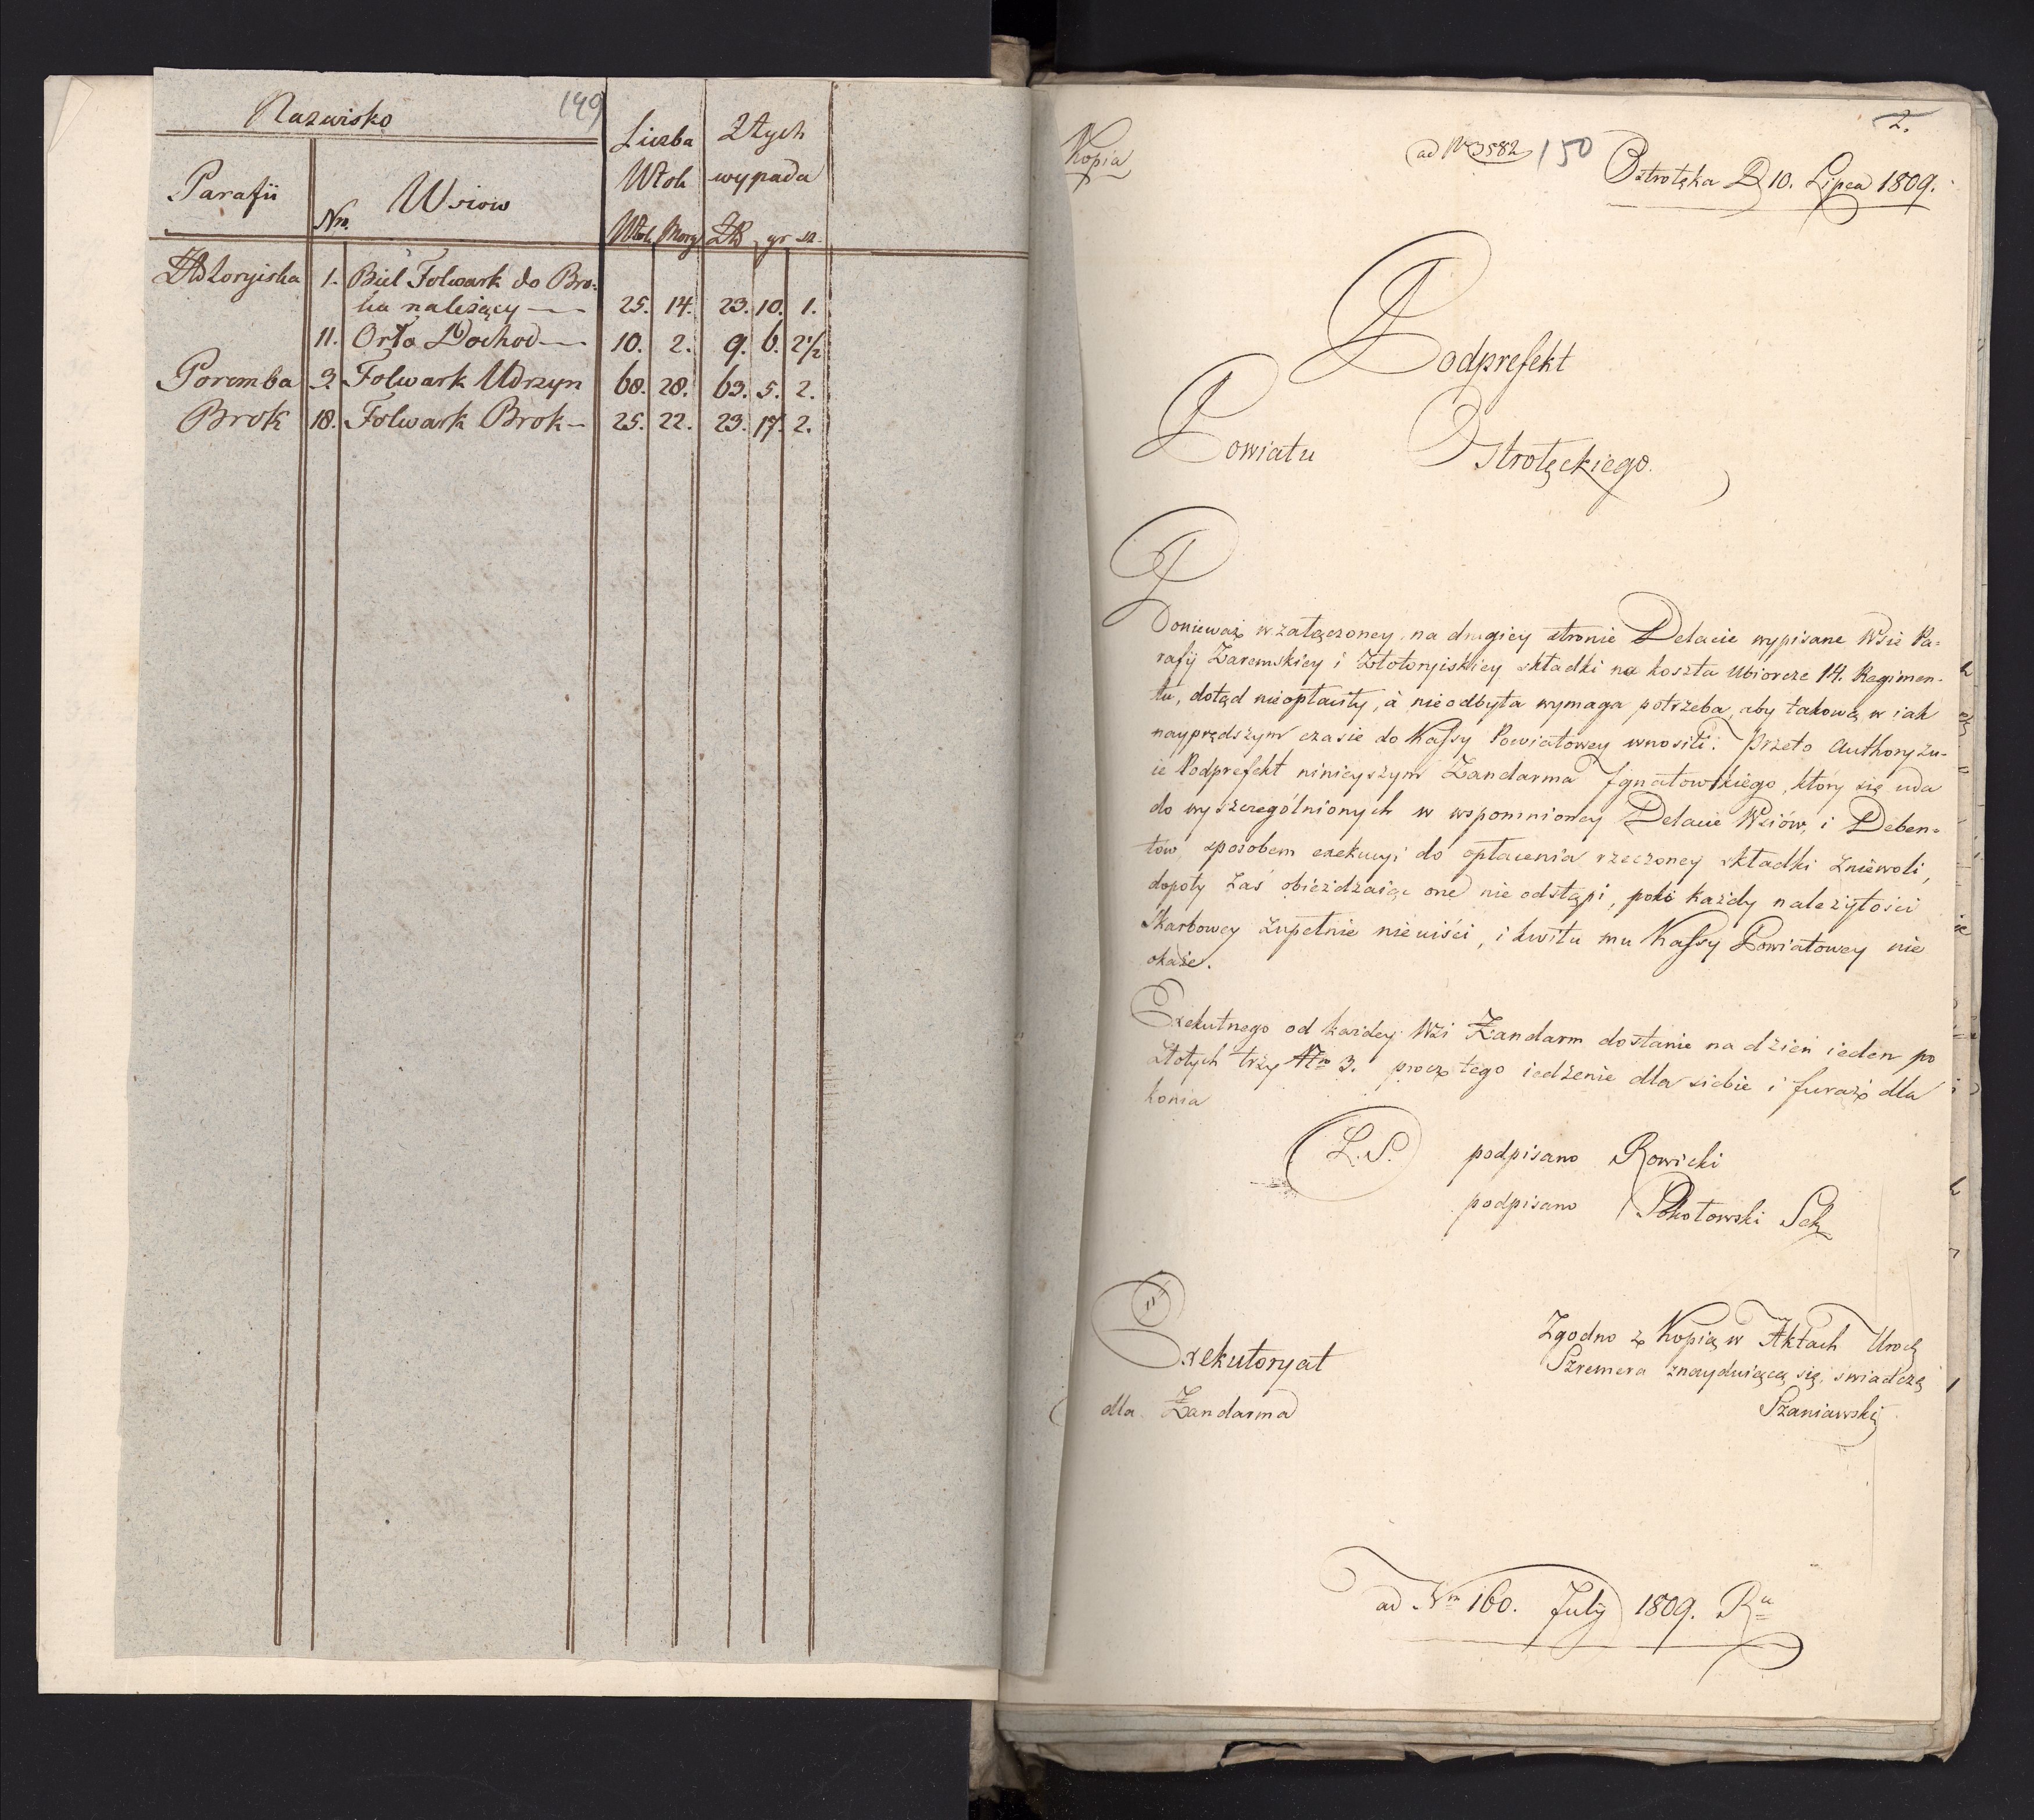 149
Nazwisko
Parafii
Nro
Wsiow
Liczba
Włok
Włok. Morg
Z tych
wypada
Zł gr sz.
Złotoryiska 1. Biel Folwark do Bro-
ka należący — 25. 14. 23. 10. 1.
11. Orło Dochod — 10. 2. 9. 6. 2 1/2
Poremba 3. Folwark Udrzyn 68. 28. 63. 5. 2.
Brok 18. Folwark Brok — 25. 22. 23. 17. 2.
2.
Kopia
ad Nro 3582
150
Ostrołęka D 10. Lipca 1809.
Podprefekt
Powiatu Ostrołęckiego.
Ponieważ w załączoney, na drugiey stronie Delacie wypisane Wsie Pa-
rafij Zaremskiey i Złotoryiskiey składki na koszta Ubiorcze 14. Regimen-
tu, dotąd nieopłaciły, à nieodbyta wymaga potrzeba, aby takową w iak
nayprędszym czasie do Kassy Powiatowey wnosili: Przeto Authoryzu-
ie Podprefekt ninieyszym Zandarma Ignatowskiego, który się uda
do wyszczególnionych w wspomnioney Delacie Wsiów, i Deben-
tów sposobem exekucyi do opłacenia rzeczoney składki zniewoli,
dopoty zaś obieżdzaiąc one nie odstąpi, poki każdy należytości
Skarbowey zupełnie nieuiści, i kwitu mu Kassy Powiatowey nie
okaże.
Exekutnego od każdey Wsi Zandarm dostanie na dzień ieden po
Złotych trzy Nro 3. procz tego iedzenie dla siebie i furaż dla
konia
L.S. podpisano Rowicki
podpisano Pokotowski Sek
Exekutoryat
dla Zandarma
Zgodno z Kopią w Aktach Urod
Szremera znayduiącą się, świadczę
Szaniawski
ad Nro 160. July 1809. Ra